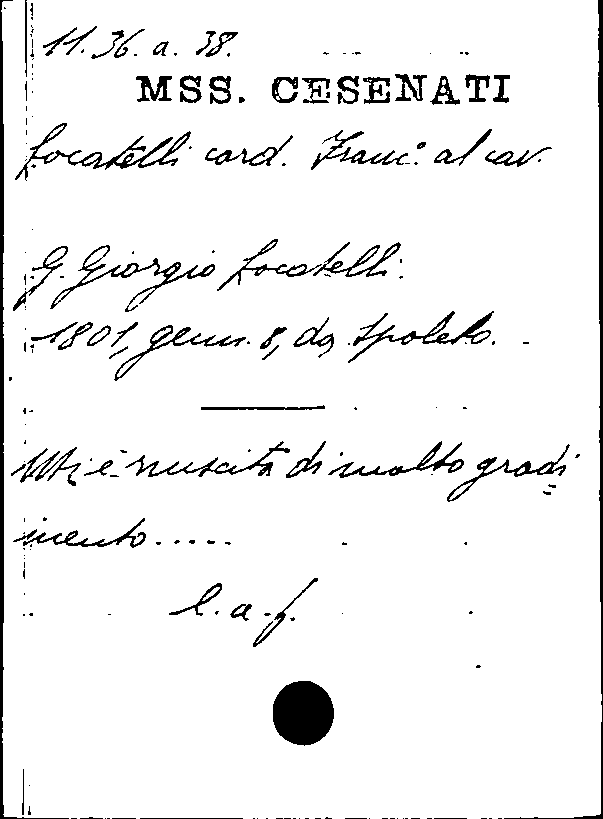 11. 36. a. 38.
MSS. CESENATI
Locatelli card. Franc.° al cav.
G. Giorgio Locatelli.
1801, genn. 8, da Spoleto.
Mi è riuscita di molto gradi
mento.....
l. a. f.